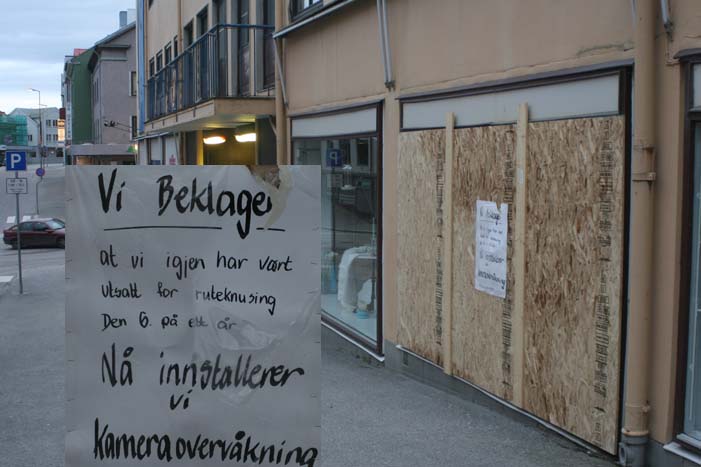 Vi Beklager
at vi igjen har vært
utsatt for ruteknusing
Den 6. på ett år
Nå innstallerer
vi
kameraovervåkning
P
Vi Beklager